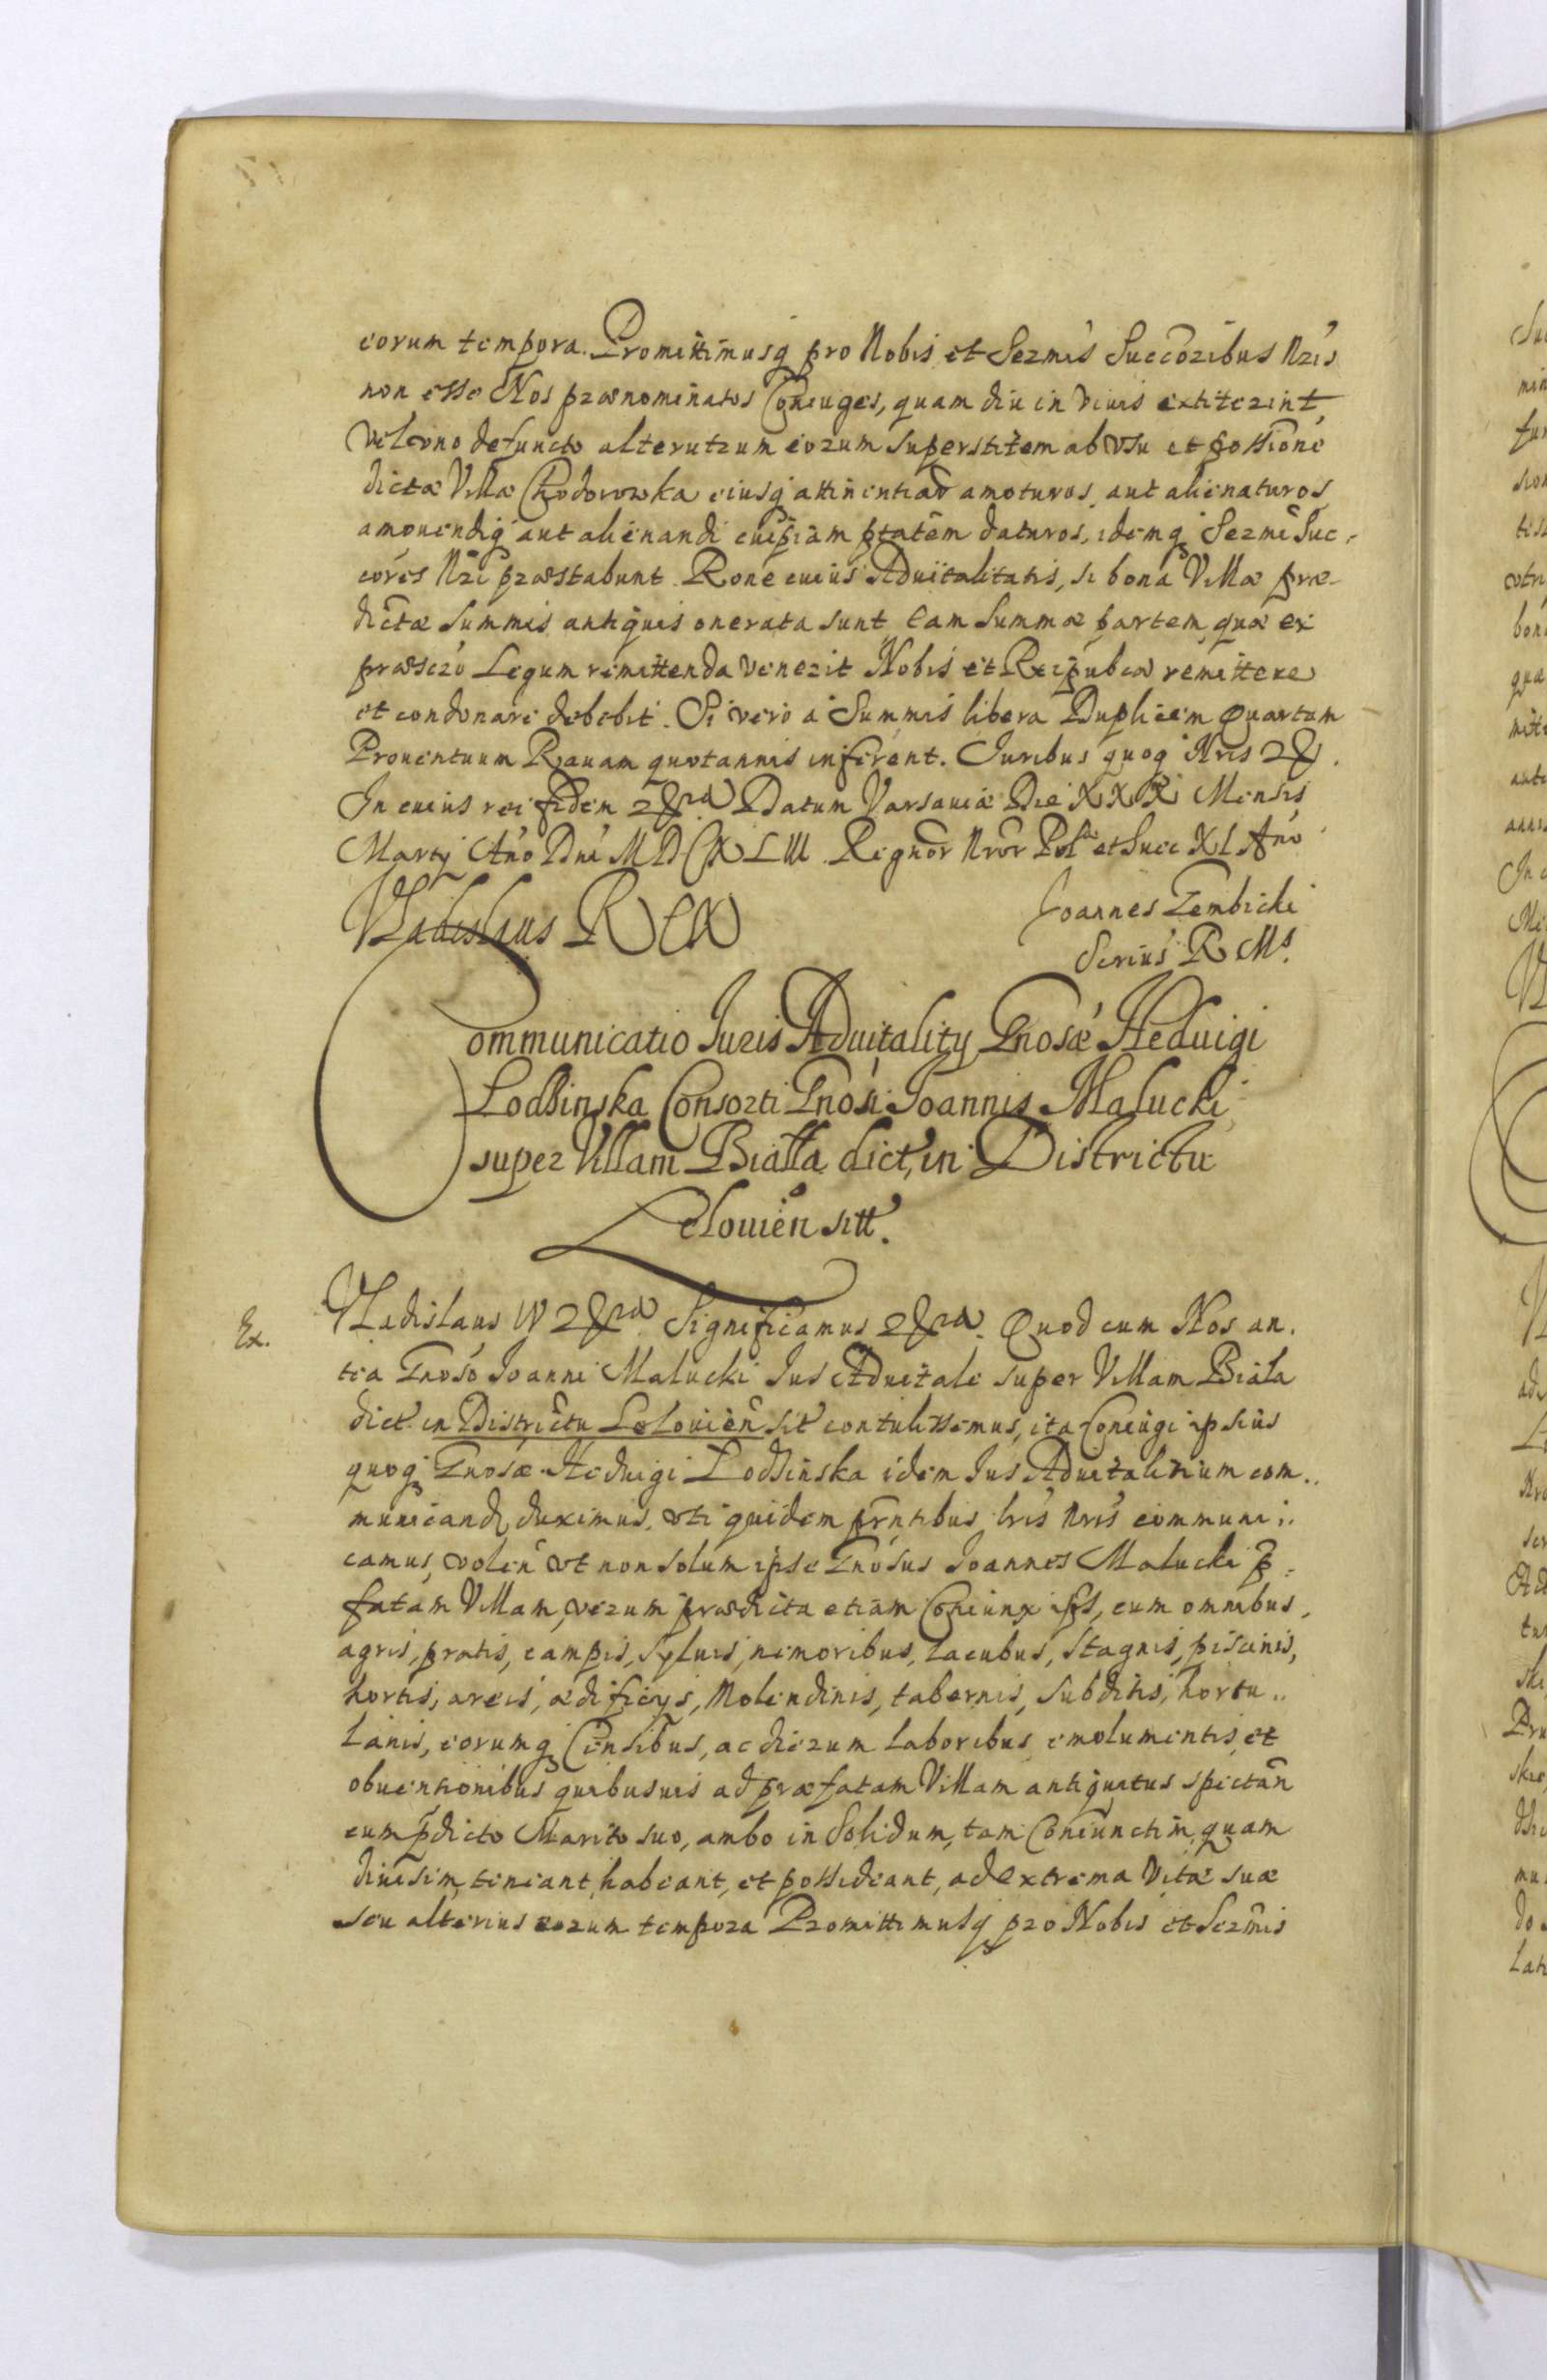 eorum tempora. Promittimusq pro Nobis et Sermis Succoribus Nris
non esse Nos prænominatos Coniuges, quam diu in viuis extiterint,
vel vno defuncto alterutrum eorum superstitem ab vsu et possione
dictæ Villæ Chodorowka eiusq attinentiad amoturos, aut alienaturos
amouendiq aut alienandi cuipiam ptatem daturos, idemq Sermi Suc-
cores Nri præstabunt. Rone cuius Aduitalitatis, si bona Villæ præ-
dictæ summis antiquis onerata sunt eam summæ partem, quæ ex
præscro Legum remittenda venerit Nobis et Reipubcæ remittere
et condonare debebit. Si vero a Summis libera Duplicem Quartam
Prouentuum Rauam quotannis inferent. Iuribus quoq Nris 2&.
In cuius rei fidem 2&ra Datum Varsauiæ Die XXX Mensis
Martij Ano Dni MDCXLIII Regnor Nror Pol et Suec XI Ano
Vladislaus Rex
Joannes Gembicki
Scrius R Ms.
Communicatio Iuris Aduitality Gnosæ Heduigi
Lodzinska Consorti Gnosi Joannis Malucki
super Villam Biała dict, in Districtu
Lelouien sitt.
Ex.
Vladislaus IV 2&ra. Significamus 2&ra. Quod cum Nos an.
tea Gnoso Joanni Malucki Ius Aduitale super Villam Biała
dict in Districtu Lelouien sit contulissemus, ita Coniugi ipsius
quoq Gnosæ Heduigi Lodzinska idem Ius Aduitalitium com..
municand duximus, vti quidem prntibus lris nris communi..
camus, volen vt non solum ipse Gnosus Joannes Malucki p.
fatam Villam, verum prædicta etiam Coniunx ips, cum omnibus,
agris, pratis, campis, syluis, nemoribus, lacubus, stagnis, piscinis,
hortis, areis, ædificijs, Molendinis, tabernis, subditis, hortu..
lanis, eorumq Censibus, ac dierum laboribus emolumentis et
obuentionibus quibusuis ad præfatam Villam antiquitus spectan
cum pdicto Marito suo, ambo in Solidum, tam Coniunctim quam
diuisim, teneant, habeant, et possideant, ad extrema vitæ suæ
seu alterius eorum tempora Promittimusq pro Nobis et Sermis